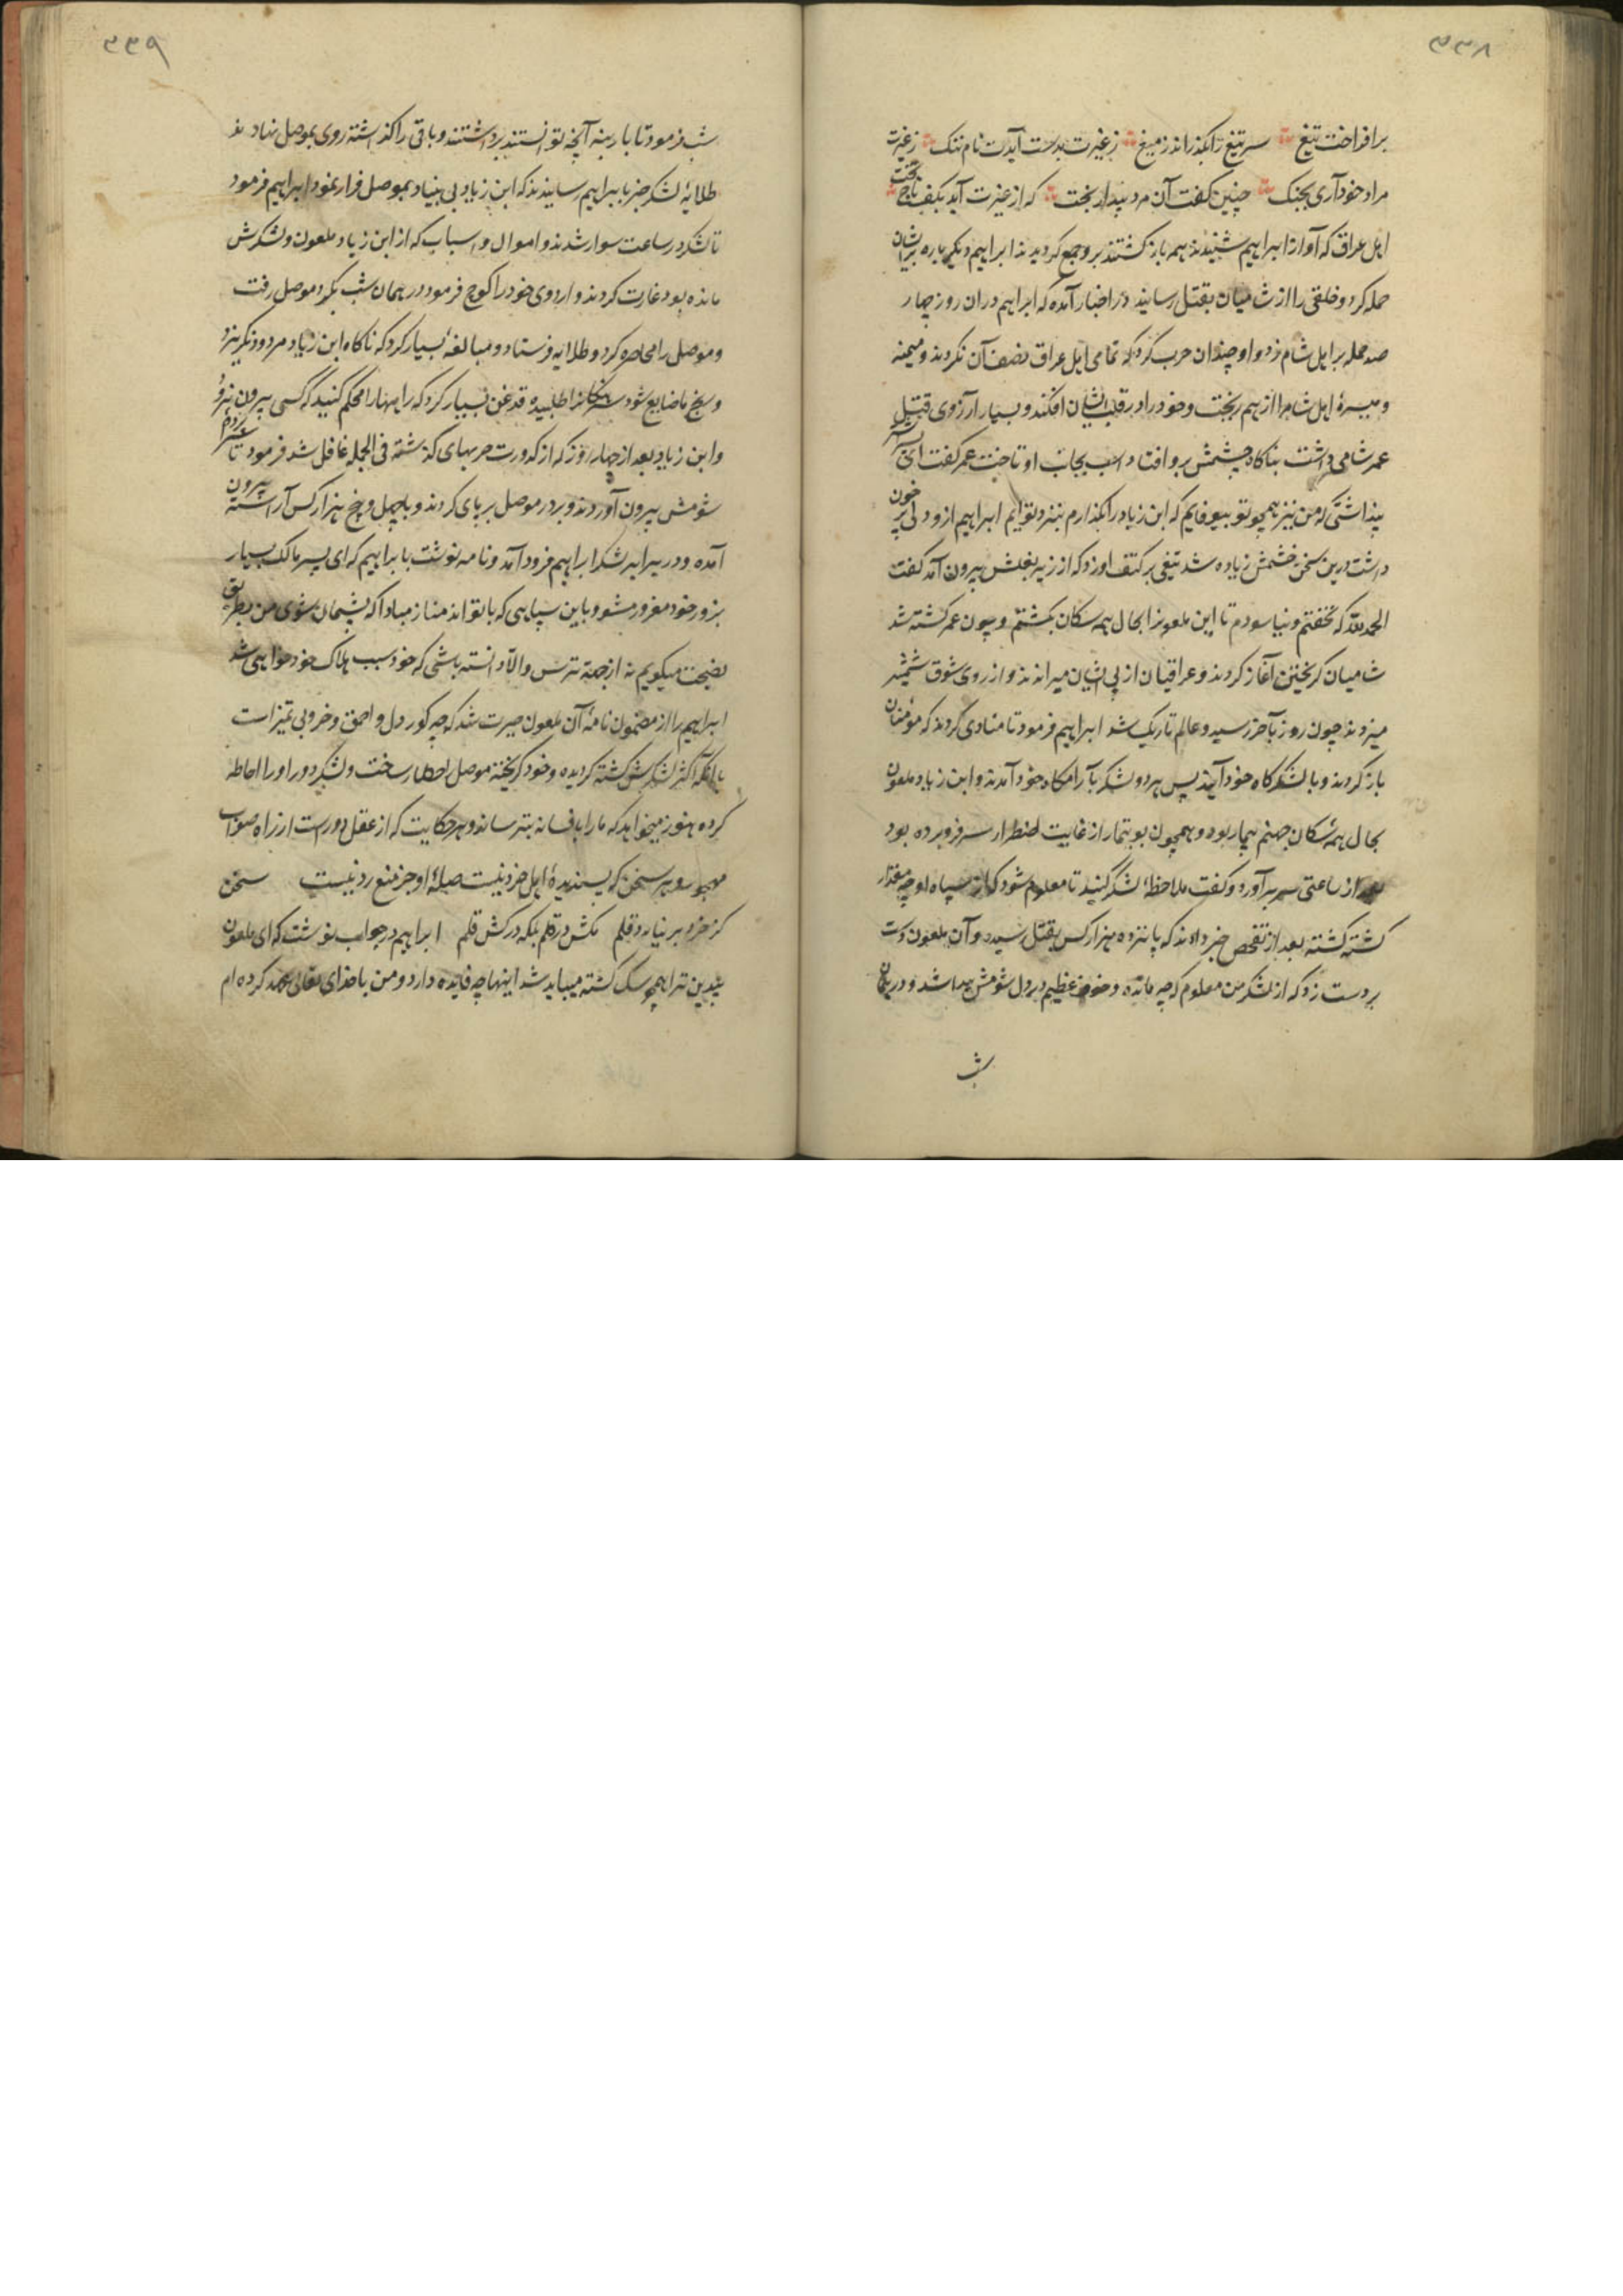 ۳۳۸
برافراخت تیغ سر تیغ را بگذراند ز میغ ز غیرت بدست آیدت نام ننک ز غیرت
مراد خود آری بجنک چنین گفت آن مرد بیدار بخت که از غیرت آید بکف تاج تخت
اهل عراق که آواز ابراهیم شنیدند همه بازکشتند برو جمع کردیدند ابراهیم دیگر باره برایشان
حمله کرد و خلقی را از شامیان بقتل رسانید در اخبار آمده که ابراهیم دران روز چهار
صد حمله بر اهل شام زد و او چندان حرب کرد که تمامی اهل عراق نصف آن نکردند و میمنه
و میسرۀ اهل شام را از هم ریخت و خود را در قلب ایشان افکند و بسیار آرزوی قتل
عمر شامی داشت بناگاه چشمش برو افتاد اسب بجانب او تاخت عمر گفت ای
پنداشتی که من نیز همچو تو بیوفایم که ابن زیاد را بگذارم بنزد تو ایم ابراهیم ازو دلی پر خون
داشت درین سخن خشمش زیاده شد تیغی بر کتف او زد که از زیر بغلش بیرون آمد گفت
الحمد لله که نخفتم و نیاسودم تا این ملعون را بحال همه سکان بکشتم و چون عمر کشته شد
شامیان کریختن آغاز کردند و عراقیان از پی ایشان میراندند و از روی شوق شمشیر
میزدند چون روز بآخر رسید و عالم تاریک شد ابراهیم فرمود تا منادی کردند که مؤمنان
باز کردند و بالشکرکاه خود آیند پس هر دو لشکر بآرامکاه خود آمدند و ابن زیاد ملعون
بحال همۀ سکان جهنم بیمار بود و همچون بوتیمار از غایت اضطرار سر فرو برده بود
بعد از ساعتی سر برآورد و گفت ملاحظۀ لشکر کنید تا معلوم شود که از سپاه او چه مقدار
کشته کشته بعد از تفحص خبر دادند که پانزده هزار کس بقتل رسیده و آن ملعون دست
بر دست زد که از لشکر من معلوم که چه مانده و خوف عظیم در دل شومش پیدا شد و در همان
شب
۳۳۹
شب فرمود تا بار بنه آنچه توانستند برداشتند و باقی را گذاشته روی بموصل نهادند
طلایۀ لشکر خبر بابراهیم رسانیدند که ابن زیاد بی بنیاد بموصل فرار نمود ابراهیم فرمود
تا لشکر در ساعت سوار شدند و اموال و اسباب که از ابن زیاد ملعون و لشکرش
مانده بود غارت کردند و اردوی خود را کوچ فرمود در همان شب بکرد موصل رفت
و موصل را محاصره کرد و طلایه فرستاد و مبالغه بسیار کرد که ناکاه ابن زیاد مردود نکریزد
و رنج ما ضایع شود سرهنگان را طلبیده قدغن بسیار کرد که راهها را محکم کنید که کسی بیرون نرود
و ابن زیاد بعد از چهار روز که از کدورت حربهای گذشته فی الجمله غافل شد فرمود تا
شومش بیرون آوردند و بر در موصل بر پای کردند و با چهل و پنج هزار کس آراسته بیرون
آمده و در برابر لشکر ابراهیم فرود آمد و نامه نوشت بابراهیم که ای پسر مالک بسیار
بزور خود مغرور مشو و باین سپاهی که با تواند مناز مبادا که پشیمان شوی من بطریق
نصیحت میگویم نه از جهة ترس والا دانسته باشی که خود سبب هلاک خود خواهی شد
ابراهیم را از مضمون نامۀ آن ملعون حیرت شد که چه کور دل و احمق و خر و بی تمیز است
با آنکه اکثر لشکرش کشته کردیده و خود کریخته موصل را حصار ساخت و لشکر دور او را احاطه
کرده هنوز میخواهد که ما را بافسانه بترساند و هر حکایت که از عقل دورست از راه صواب
مهجور و هر سخن که پسندیدۀ اهل خرد نیست صلۀ او جز منع رد نیست سخن
کز خرد بر نیارد قلم مکش در قلم بلکه درکش قلم ابراهیم در جواب نوشت که ای ملعون
بیدین ترا همچو سک کشته میباید شد اینها چه فایده دارد و من با خدای تعالی عهد کرده ام